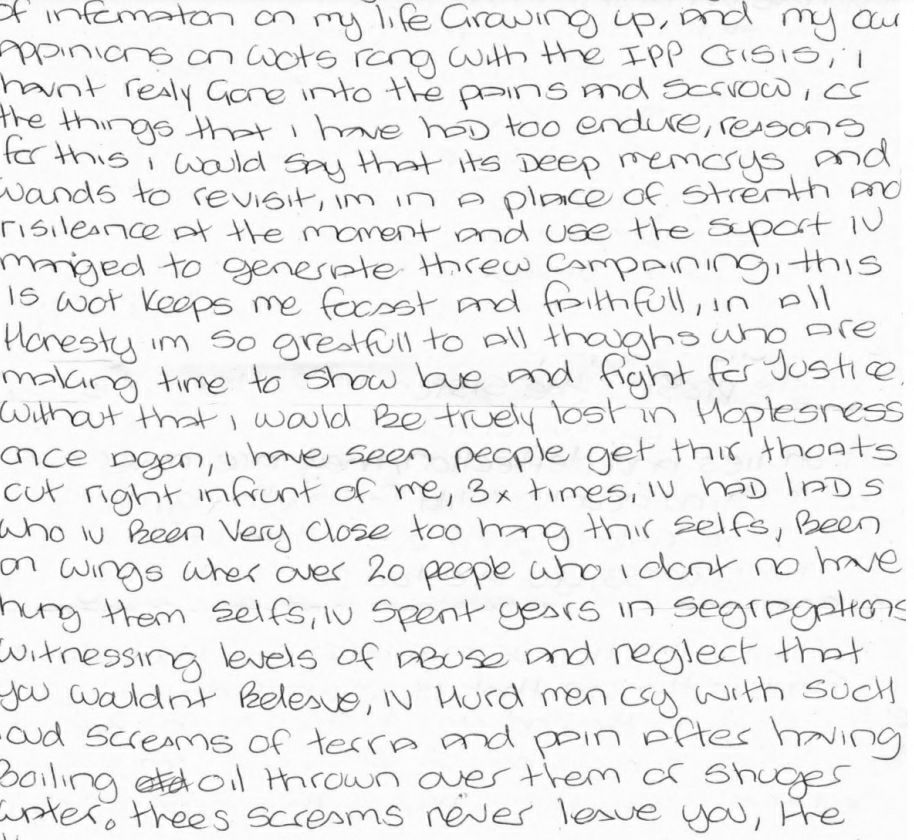 of infcmaton on my life Growing up, and my own
appinions on wots rong with the IPP crisis, i
havnt realy Gone into the pains and sorrow, or
the things that i have had too endure, reasons
for this i would say that its Deep memorys and
wands to revisit, im in a place of strenth and
risileance at the moment and use the suport iv
manged to generate threw campaining, this
is wot keeps me focast and faithfull, in all
Honesty im so greatfull to all thoughs who are
making time to show love and fight for Justice.
Without that i would Be truely lost in Hoplesness
once agen, i have seen people get thir thoats
cut right infrunt of me, 3x times, iv had lads
who iv Been Very close too hang thir selfs, Been
on wings wher over 20 people who i dont no have
hung them selfs, iv spent years in segragations
witnessing levels of abuse and neglect that
you wouldnt Beleave, iv Hurd men cry with such
loud screams of terra and pain after having
Boiling oil thrown over them or shuger
water. thees screams never leave you, the